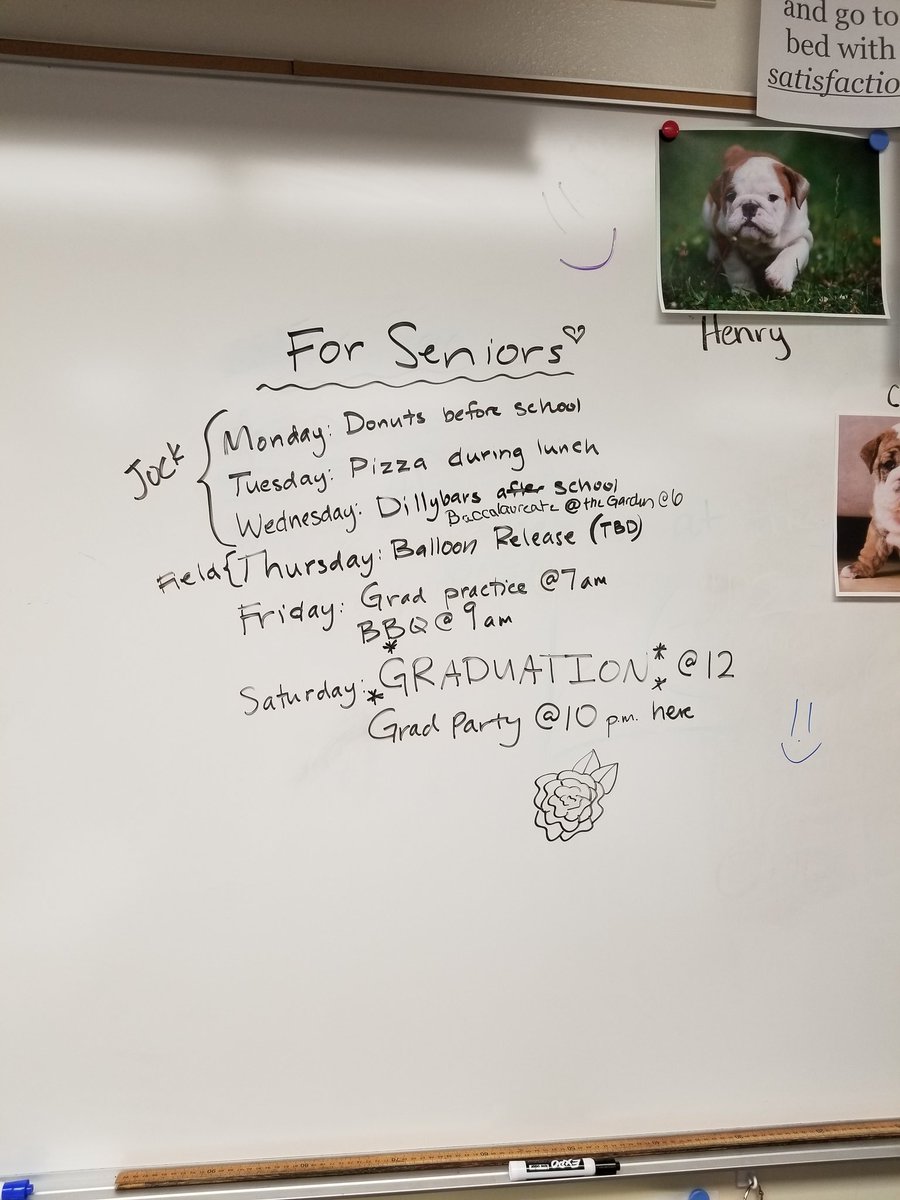 and go to
bed with
satisfactio
Henry
For Seniors
Jock
Monday: Donuts before school
Tuesday: Pizza during lunch
Wednesday: Dillybars after school
Baccalaureate @ the Garden @ 6
Field { Thursday: Balloon Release (TBD)
Friday: Grad practice @ 7 am
BBQ @ 9 am
Saturday: *GRADUATION* @ 12
Grad Party @ 10 p.m. here
EXPO